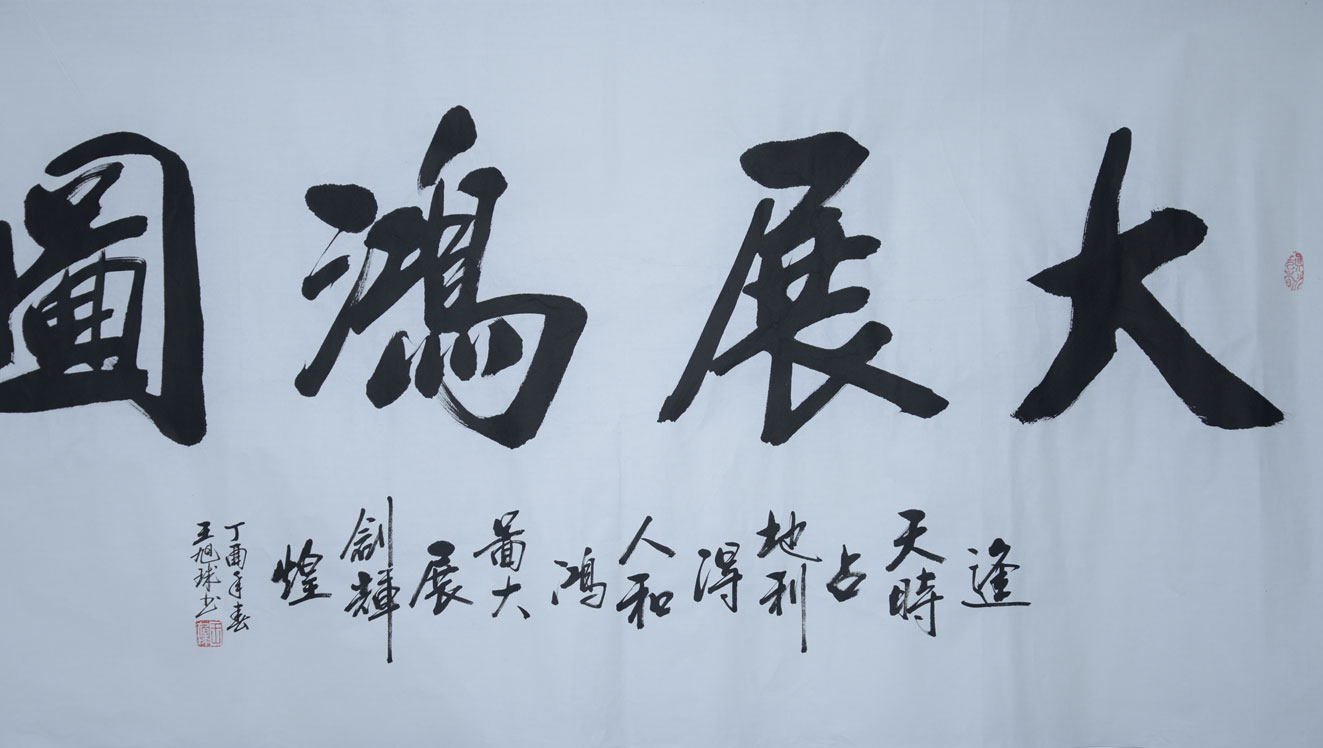 大展鴻圖
逢天時占地利得人和鴻啚大展創輝煌
丁酉年春
王旭球书